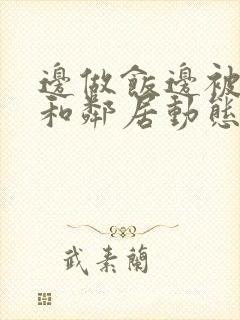 邊做飯邊被
和鄰居動態
武素蘭